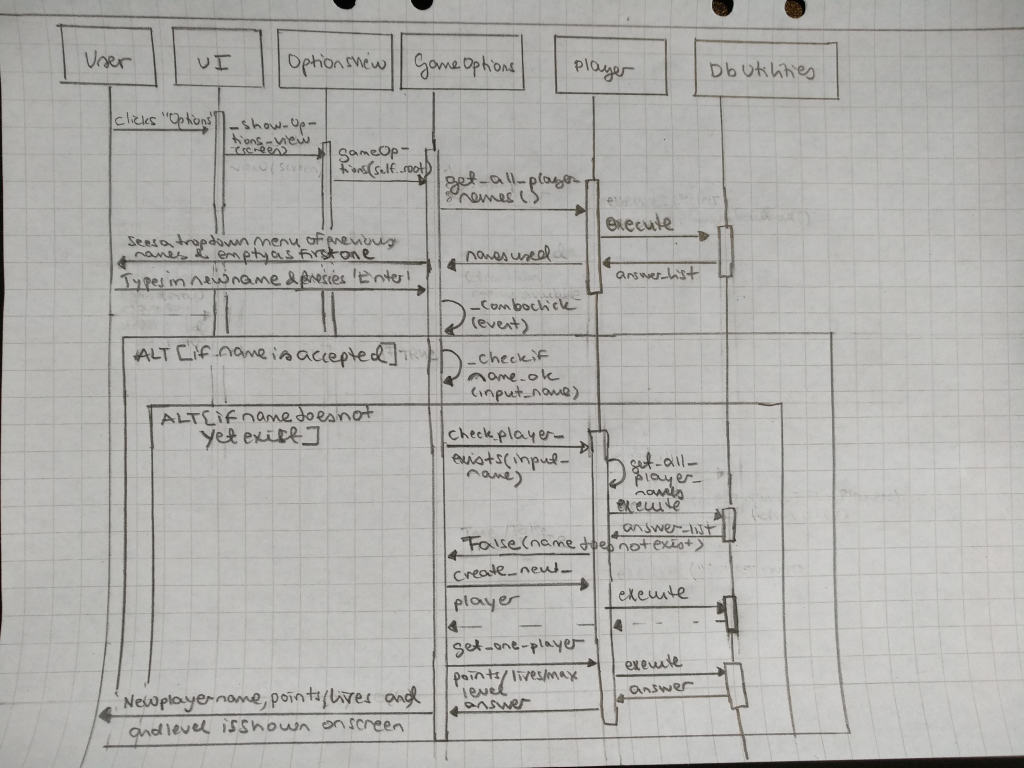 User
UI
OptionsView
GameOptions
Player
DbUtilities
clicks "Options"
_show_op-
tions_view
(screen)
gameOp-
tions(self._root)
get_all_player_
names()
execute
answer_list
names used
Sees a dropdown menu of previous
names & empty as first one
Types in new name & presses 'Enter'
_comboclick
(event)
ALT [if name is accepted]
_check if
name_ok
(input_name)
ALT [if name does not
yet exist]
check player_
exists(input_
name)
get_all_
player_
names
execute
answer_list
False (name does not exist)
create_new_
player
execute
get_one_player
execute
points/lives/max
level
answer
answer
New player name, points/lives and
and level is shown on screen